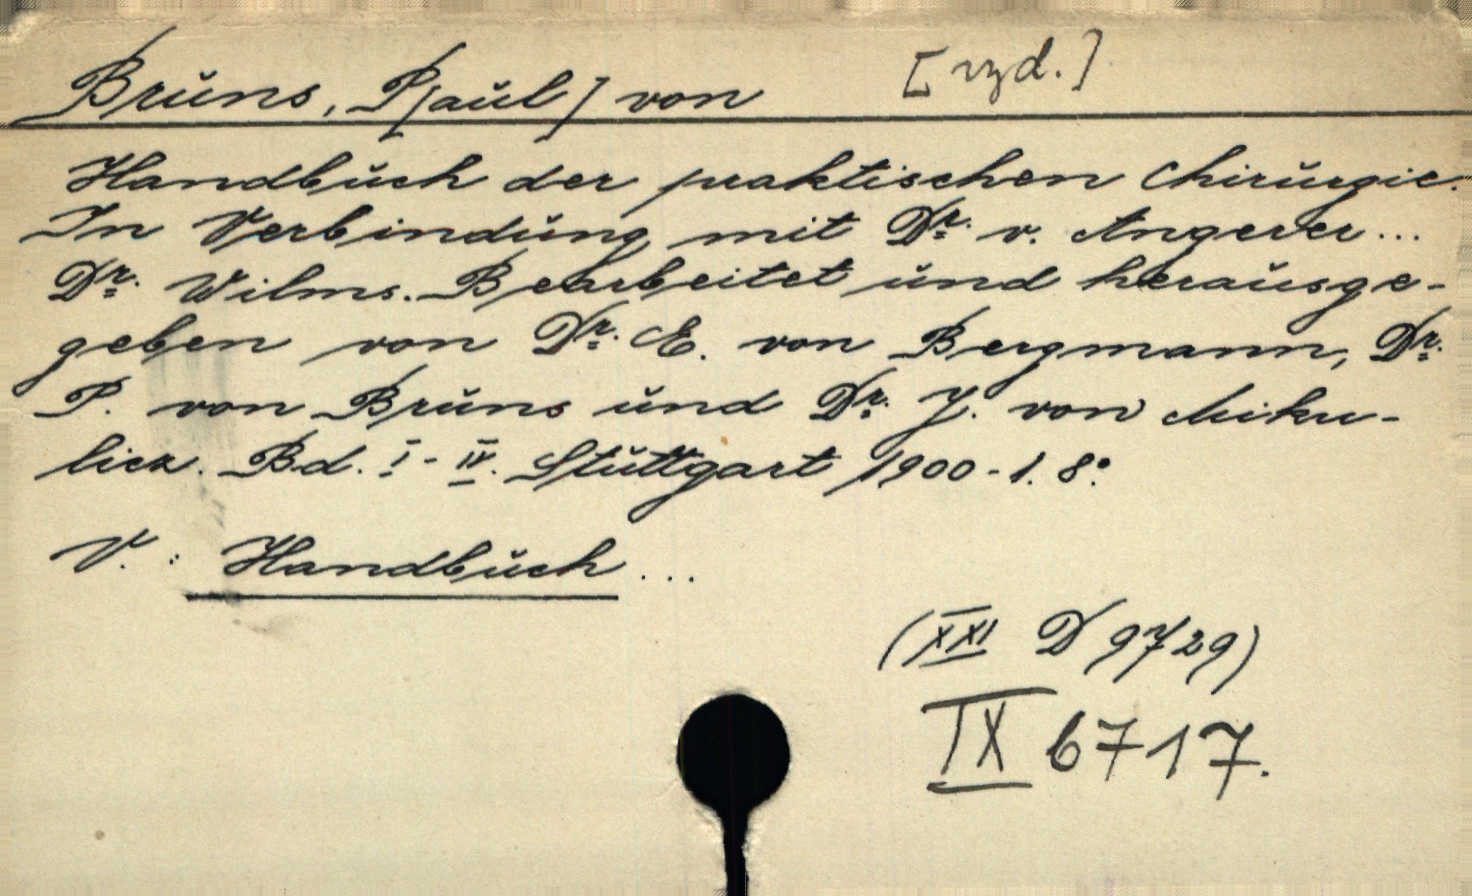 Bruns, P[aul] von [rzd.]
Handbuch der praktischen Chirurgie.
In Verbindung mit Dr. v. Angerer...
Dr. Wilms. Bearbeitet und herausge-
geben von Dr. E. von Bergmann, Dr.
P. von Bruns und Dr. J. von Miku-
licz. Bd. I-IV. Stuttgart 1900-1. 8°.
V.: Handbuch...
(XXI D 9729)
IX 6717.